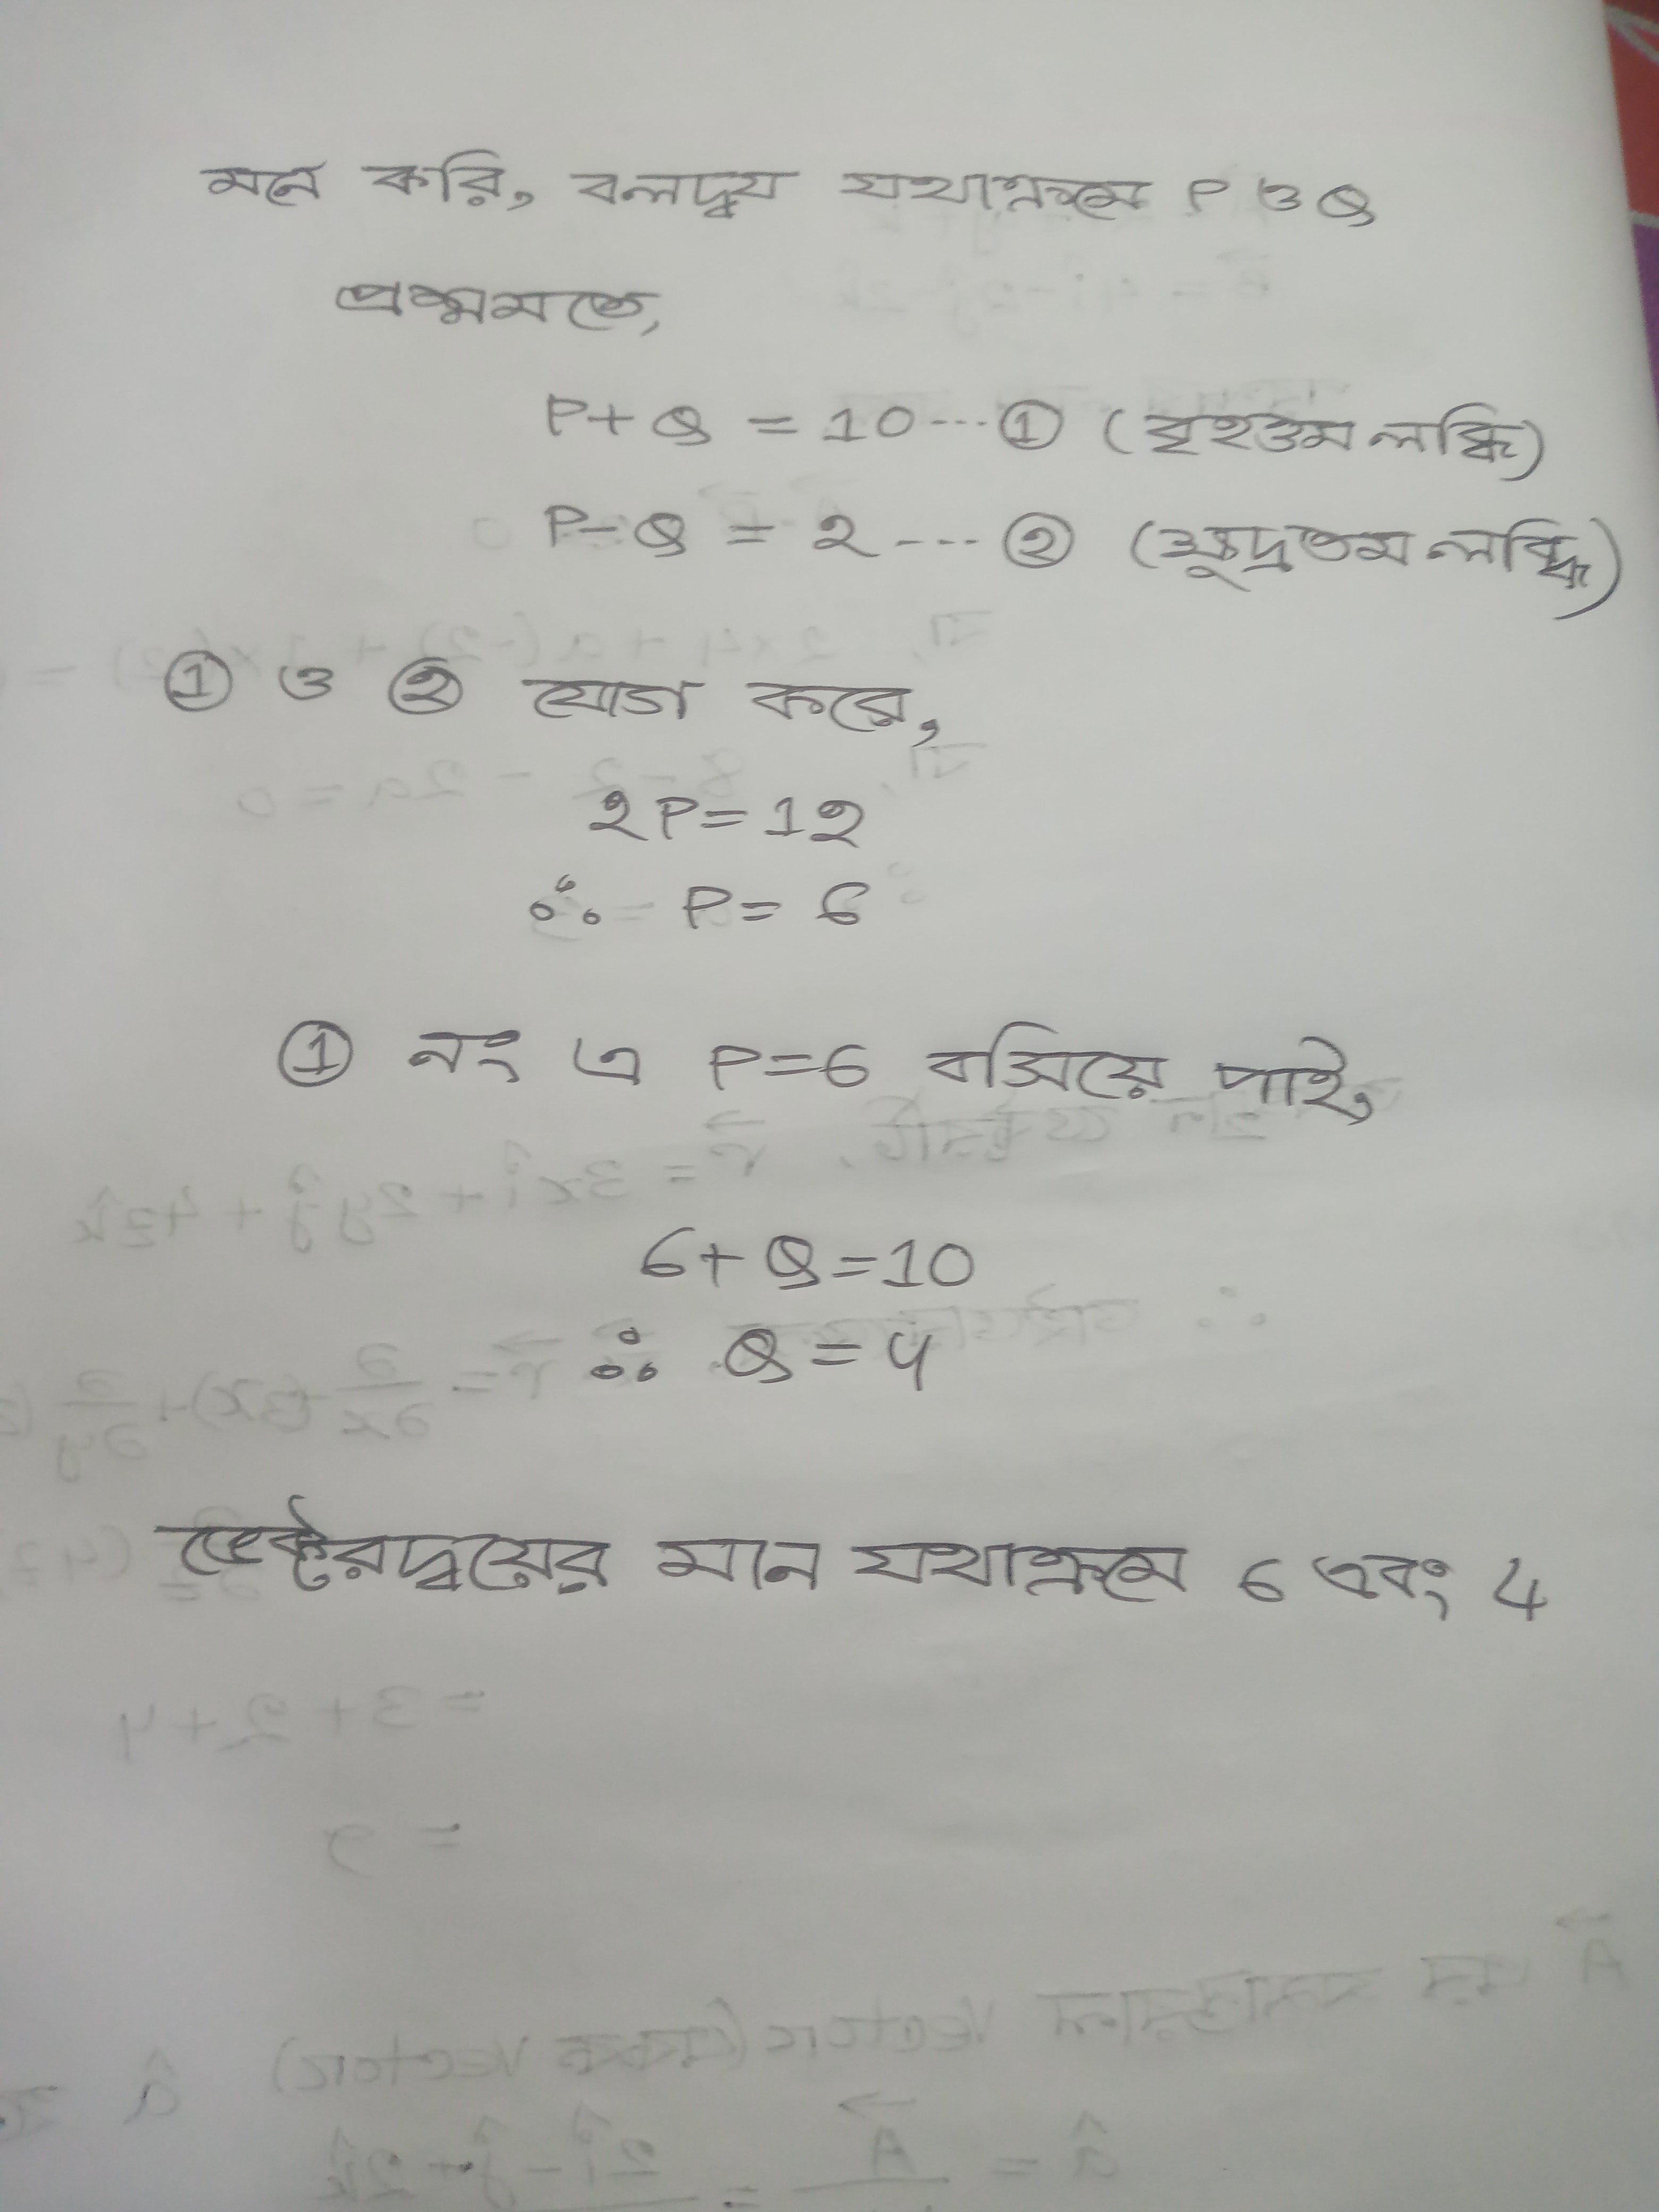 মনে করি, বলদ্বয় যথাক্রমে P ও Q
প্রশ্নমতে,
P + Q = 10 --- ① (বৃহত্তম লব্ধি)
P - Q = 2 --- ② (ক্ষুদ্রতম লব্ধি)
① ও ② যোগ করে,
2P = 12
∴ P = 6
① নং এ P=6 বসিয়ে পাই,
6 + Q = 10
∴ Q = 4
ভেক্টরদ্বয়ের মান যথাক্রমে 6 এবং 4